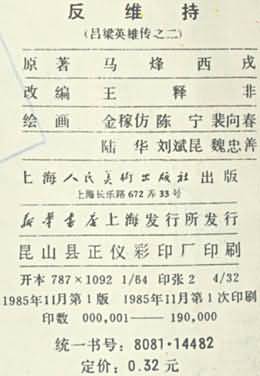 反维持
(吕梁英雄传之二)
原著 马烽 西戎
改编 王释非
绘画 金稼仿 陈宁 裴向春
陆华 刘斌昆 魏忠善
上海人民美术出版社出版
上海长乐路672弄33号
新华书店上海发行所发行
昆山县正仪彩印厂印刷
开本 787×1092 1/64 印张 2 4/32
1985年11月第1版 1985年11月第1次印刷
印数 000,001——190,000
统一书号：8081·14482
定价：0.32元